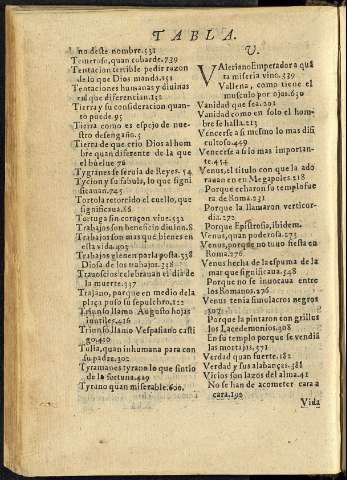 TABLA.
no deste nombre.531
Temeroso, quan cobarde.739
Tentacion terrible pedir razon
de lo que Dios manda.151
Tentaciones humanas y diuinas
en que diferencian.152
Tierra y su consideracion quanto
puede.95
Tierra como es espejo de nuestro
desengaño.5
Tierra de que crio Dios al hombre
quan diferente de la que
el huelue 76
Tygranes se seruia de Reyes. 54
Tycion y su fabula, lo que significauan.745
Tortola retorcido el cuello, que
significaua.86
Tortuga sin coraçon viue.533
Trabajos son beneficio diuino.8
Trabajos son mas que bienes en
esta vida.405
Trabajos vienen por la posta.538
Diosa de los trabajos.538
celebrauan el dia de
la muerte.537
Trajano, porque en medio de la
plaça puso su sepulchro.122
Triunfo llamo Augusto hojas
inutiles.416
Triunfo llamo Vespasiano castigo.420
Tulia, quan inhumana para con
su padre.302
Tyramanes tyrano lo que sintio
de la fortuna.419
Tyrano quan miserable.600.
V.
VAleriano Emperador a qua
ta miseria vino.339
Vallena, como tiene el
musculo por ojos.630
Vanidad que sea.201
Vanidad como en solo el hombre
se halla.213
Vencerse a si mesmo lo mas dificultoso.449
Vencerse a si lo mas importante.454
Venus, el titulo con que la adorauan
en en Megapoles.218
Porque echaron su templo fuera
de Roma.231
Porque la llamaron verticordia.272
Porque Epistrosia, ibidem.
Venus, quan poderosa.273
Venus, porque no tuuo fiesta en
Roma.276
Venus hecha de la espuma de la
mar que significaua.548
Porque no se inuocaua entre
los Romanos.276
Venus tenia simulacros negros
Porque la pintaron con grillos
los Lacedemonios.408
En su templo porque se vendiã
las mortajas.371
Verdad quan fuerte.182
Verdad y sus alabanças.381
Vicios son lazos del alma.41
No se han de acometer cara a
cara.192
Vida